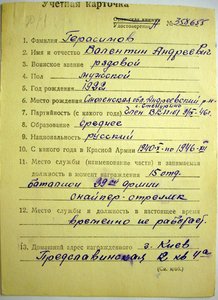 Учётная Карточка
Удостоверение № 355655
1. Фамилия Герасимов
2. Имя и отчество Валентин Андреевич
3. Воинское звание рядовой
4. Пол мужской
5. Год рождения 1922
6. Место рождения Смоленская обл
7. Партийность (с какого года) член ВКП(б)
8. Образование среднее
9. Национальность русский
10. С какого года в Красной Армии
11. Место службы (наименование части) и занимаемая
должность в момент награждения 15 отд.
баталион 39ой армии
снайпер-стрелок
12. Место службы и должность в настоящее время
временно не работает.
13. Домашний адрес награжденного г. Киев
12 кв 4а
(См. на об.)